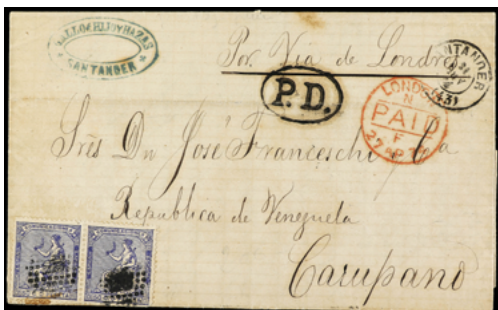 SANTANDER
Por Via de Londres
SANTANDER
(43)
P.D.
LONDON
N
PAID
F
27 AP
Srês Dn José Franceschi y Ca
Republica de Venezuela
Carupano